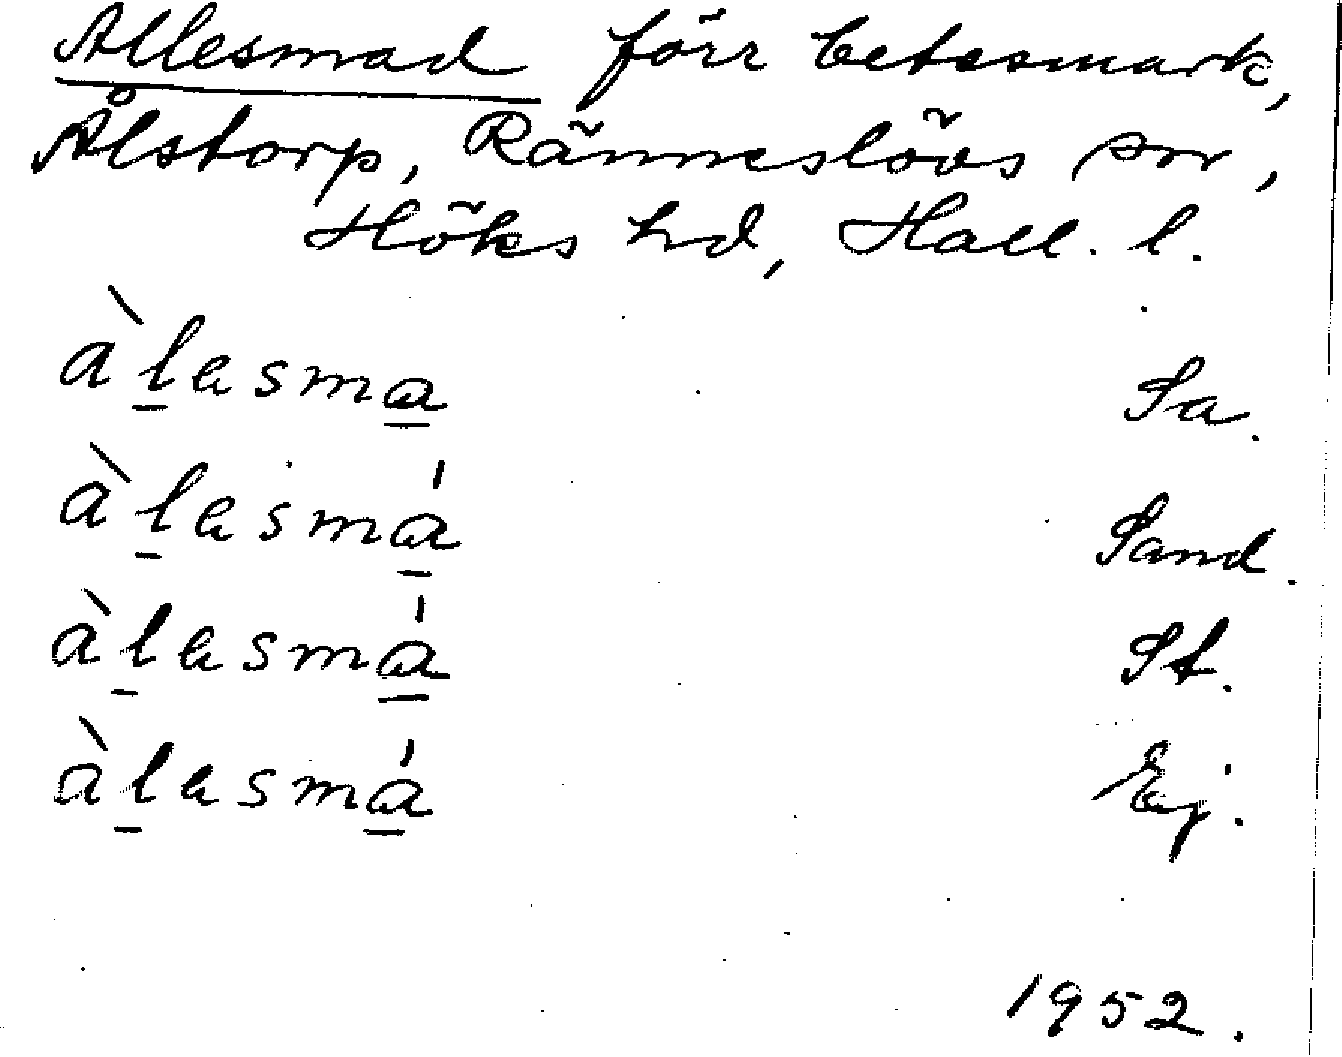 Allesmad förr betesmark,
Ålstorp, Ränneslövs sn,
Höks hd, Hall. l.
àlasma Sa.
àlasmá Sand.
àlasmá St.
àlasmá Ej.
1952.